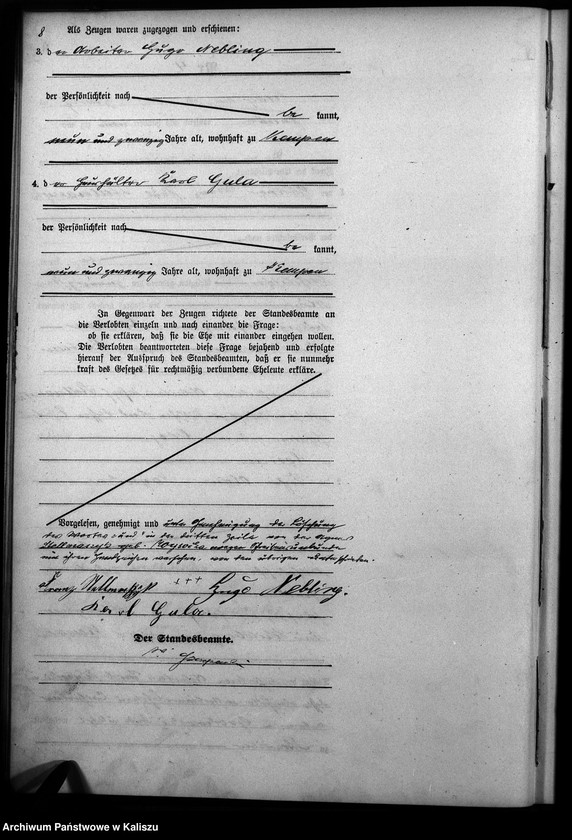 8
Als Zeugen waren zugezogen und erschienen:
3. der Arbeiter Hugo Nebling
der Persönlichkeit nach
be kannt,
neun und zwanzig Jahre alt, wohnhaft zu Kempen
4. der Haushälter Karl Gula
der Persönlichkeit nach
be kannt,
neun und zwanzig Jahre alt, wohnhaft zu Kempen
In Gegenwart der Zeugen richtete der Standesbeamte an
die Verlobten einzeln und nach einander die Frage:
ob sie erklären, daß sie die Ehe mit einander eingehen wollen.
Die Verlobten beantworteten diese Frage bejahend und erfolgte
hierauf der Ausspruch des Standesbeamten, daß er sie nunmehr
kraft des Gesetzes für rechtmäßig verbundene Eheleute erkläre.
Vorgelesen, genehmigt und unter Genehmigung der Löschung
des Wortes "und" in der dritten Zeile von der
geb. wegen Schreibensunkunde
mit ihrem Handzeichen versehen, von den übrigen unterschrieben.
Franz +++ Hugo Nebling.
Karl Gula.
Der Standesbeamte.
Archiwum Państwowe w Kaliszu